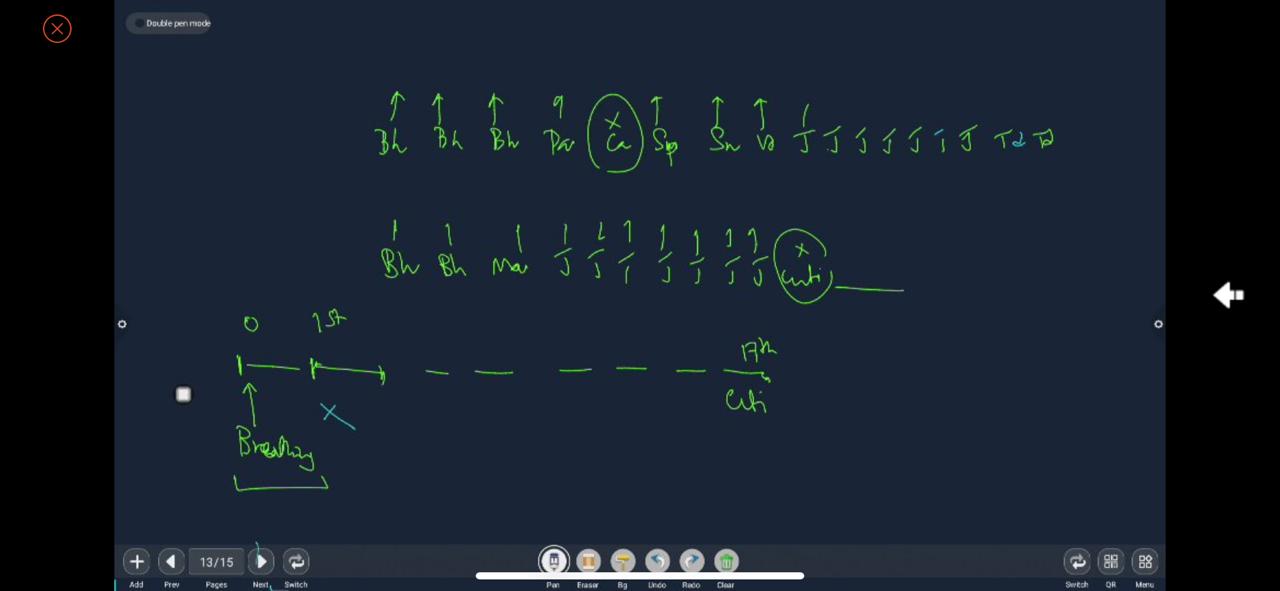 Double pen mode
Bh Bh Bh Par x Ca Sp Sn Va J J J J J J J Td Td
Bh Bh Ma J J J J J J J x
0 1st
17th
Citi
x
Breaking
13/15
Add Prev Pages Next Switch Pen Eraser Bg Undo Redo Clear Switch QR Menu